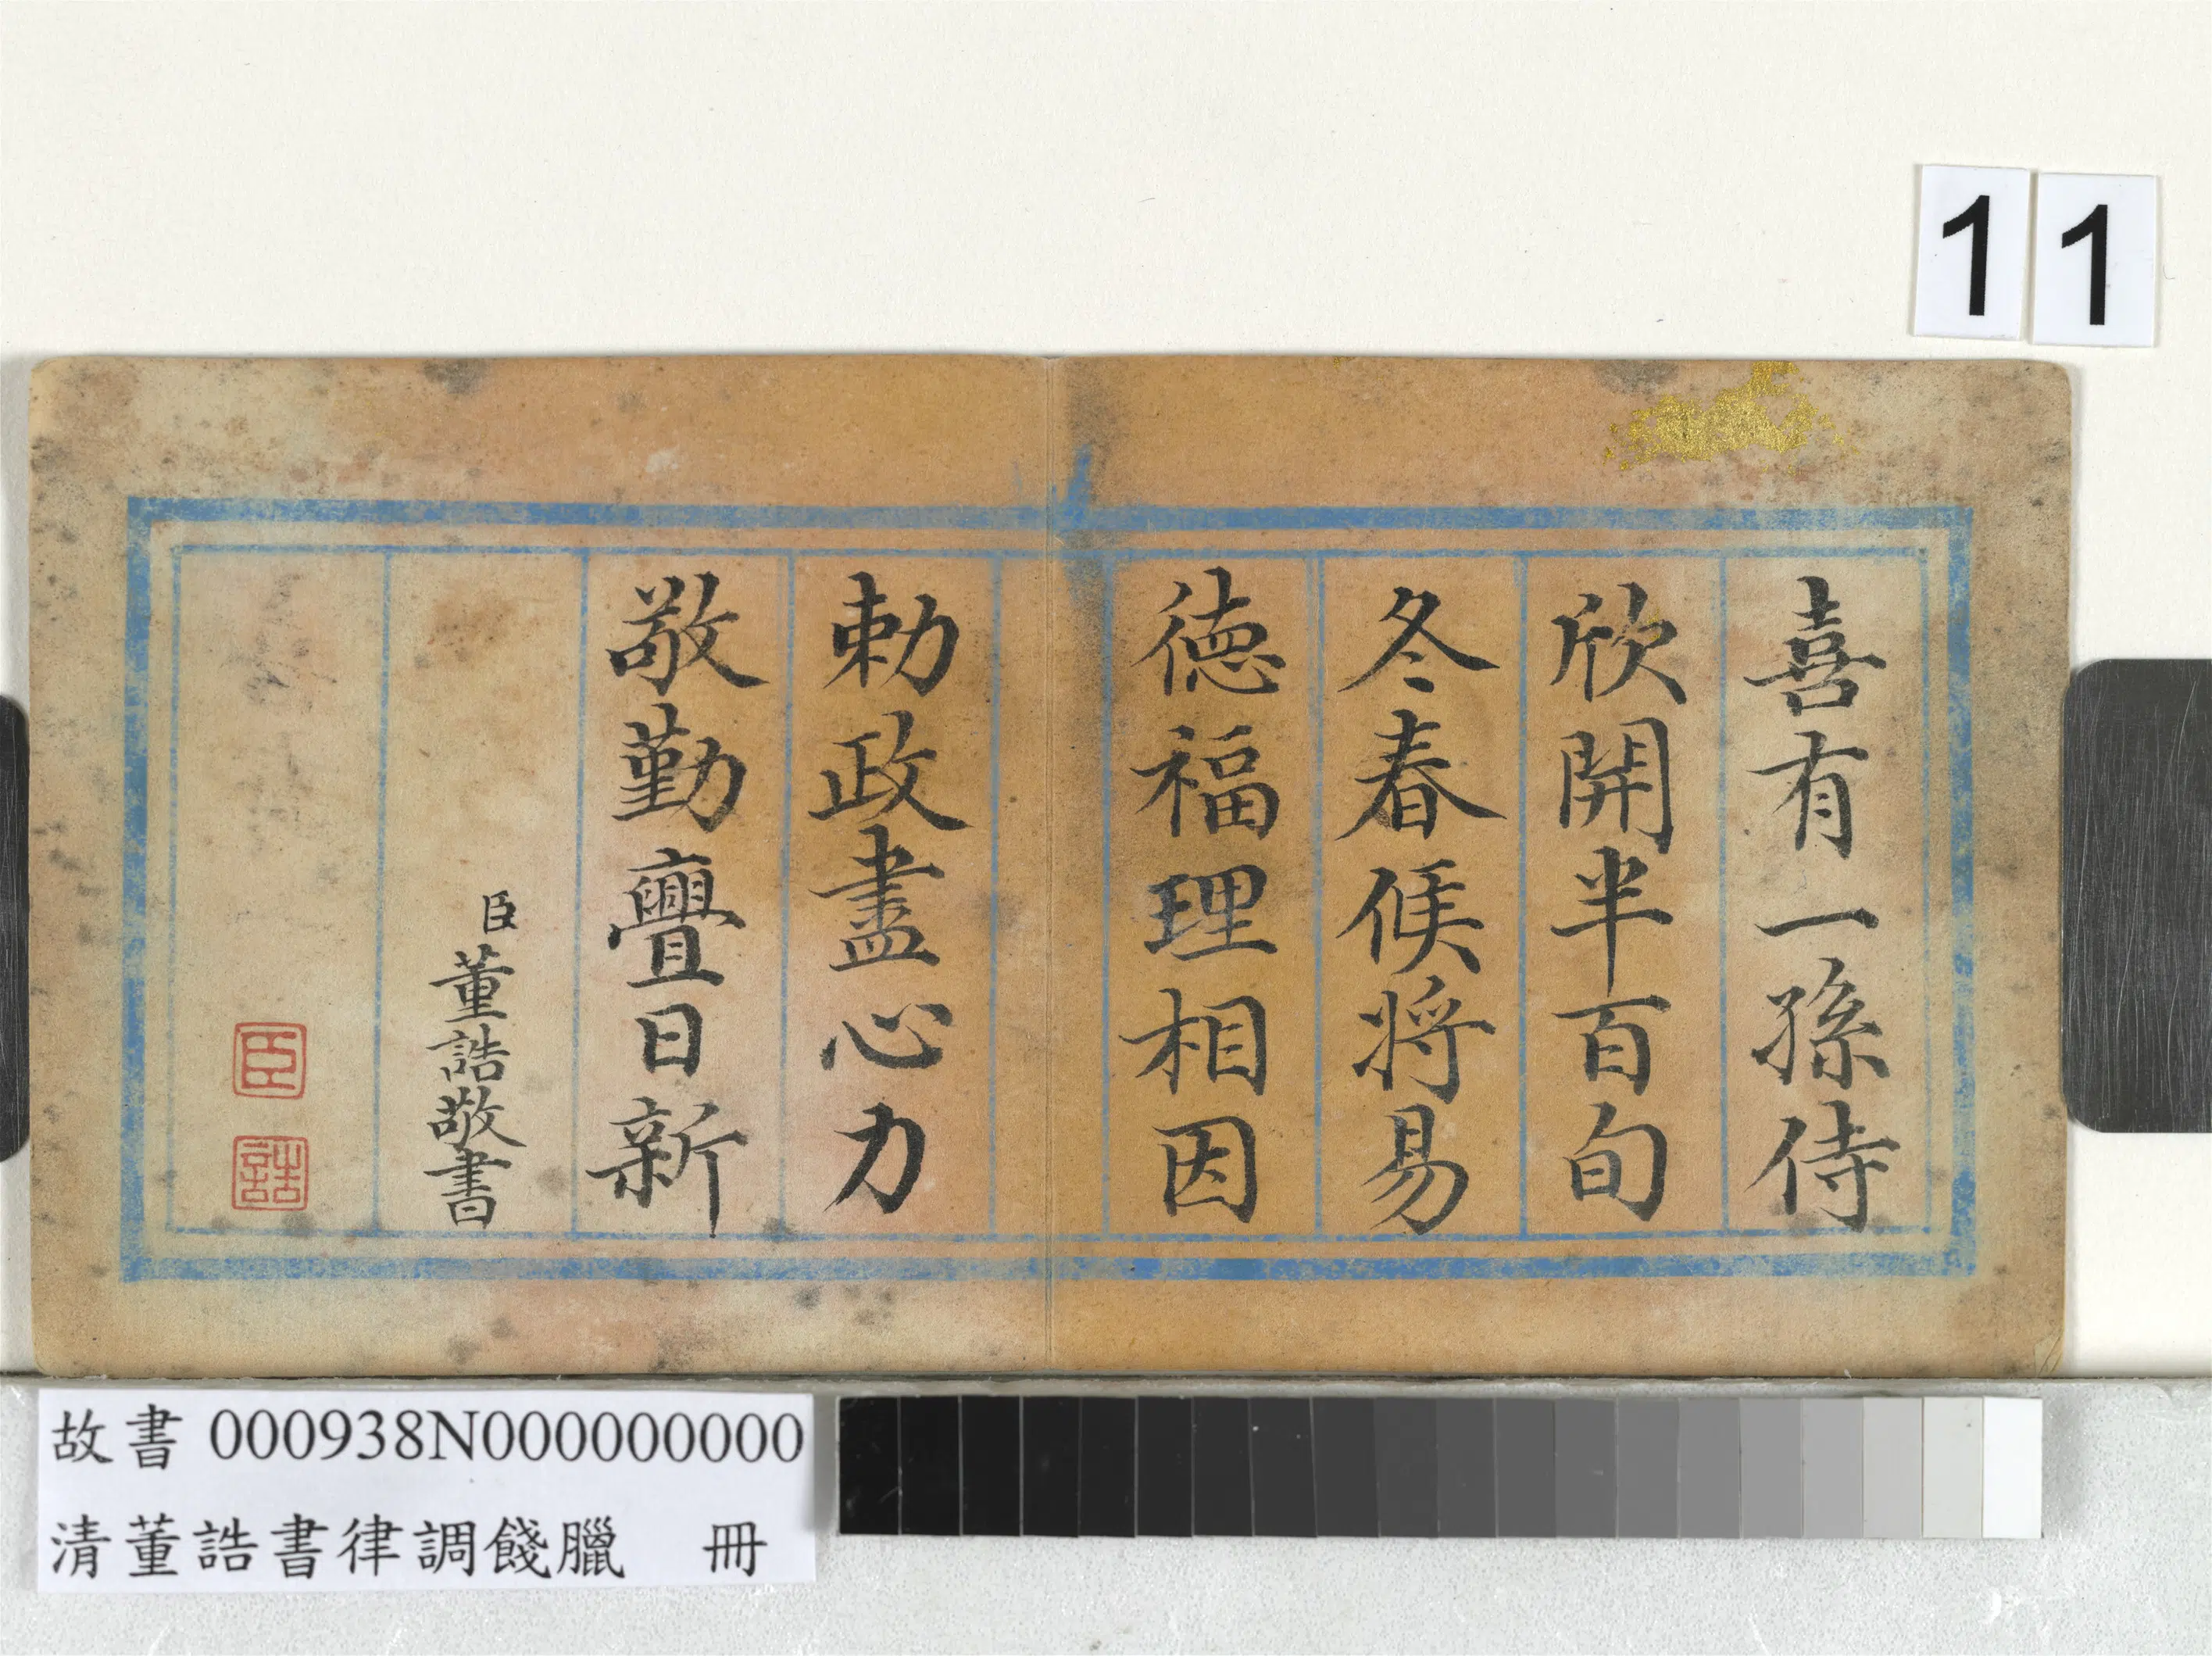 11
喜有一孫侍
欣開半百旬
冬春候将易
徳福理相因
勅政盡心力
敬勤亹日新
臣董誥敬書
臣
誥
故書 000938N000000000
清董誥書律調餞臘 冊